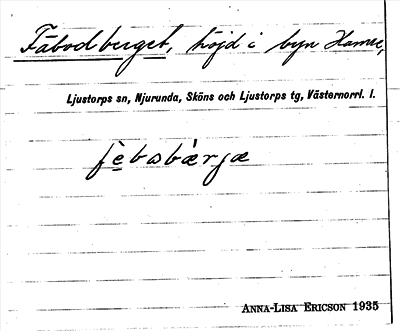 Fäbodberget, höjd i byn Hamre,
Ljustorps sn, Njurunda, Sköns och Ljustorps tg, Västernorrl. l.
fèbabærjæ
ANNA-LISA ERICSON 1935